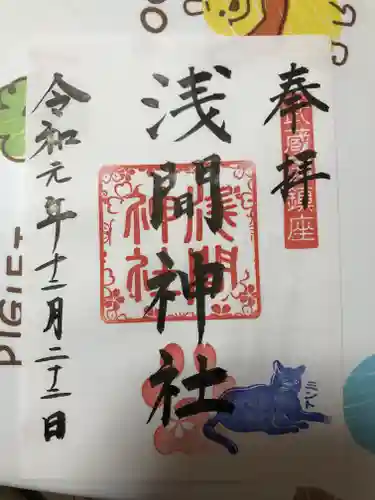 奉拝
武蔵国鎮座
浅間神社
浅間神社
令和元年十二月二十二日
ミント